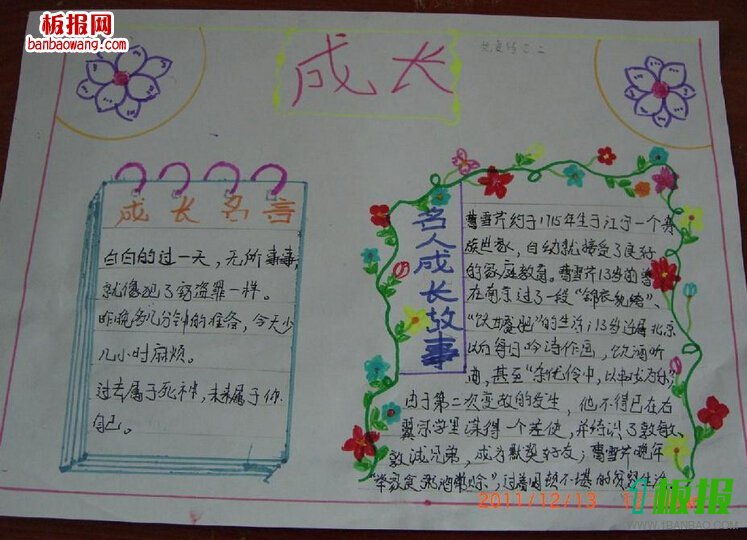 板报网
banbaowang.com
成长
成长名言
白白的过一天,无所事事,
就像犯了窃盗罪一样。
昨晚多几分钟的准备,今天少
几小时麻烦。
过去属于死神,未来属于你
自己。
名人成长故事
曹雪芹约于1715年生于江宁一个贵
族世家,自幼就接受了良好
的家庭教育。曹雪芹13岁前曾
在南京过了一段“锦衣纨绔”、
“饮甘餍肥”的生活;13岁迁居北京
以后每日吟诗作画,饮酒听
曲,甚至“杂优伶中,以串戏为乐”
由于第二次变故的发生,他不得已在右
翼宗学里谋得一个差使,并结识了敦敏、
敦诚兄弟,成为默契好友;曹雪芹晚年
“举家食粥酒常赊”,过着困顿不堪的贫穷生活
2011/12/13
板报
WWW.1BANBAO.COM